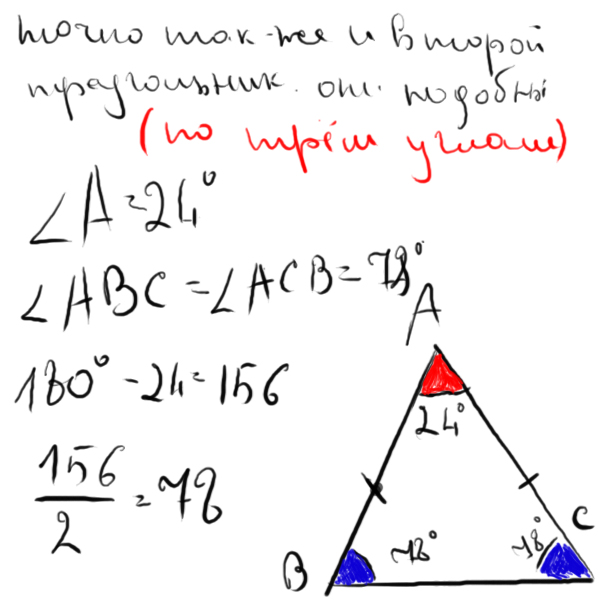 точно так-же и второй
треугольник. они подобны
(по трём углам)
∠A=24°
∠ABC=∠ACB=78°
180°-24=156
156
2
=78
A
24°
C
B
78°
78°